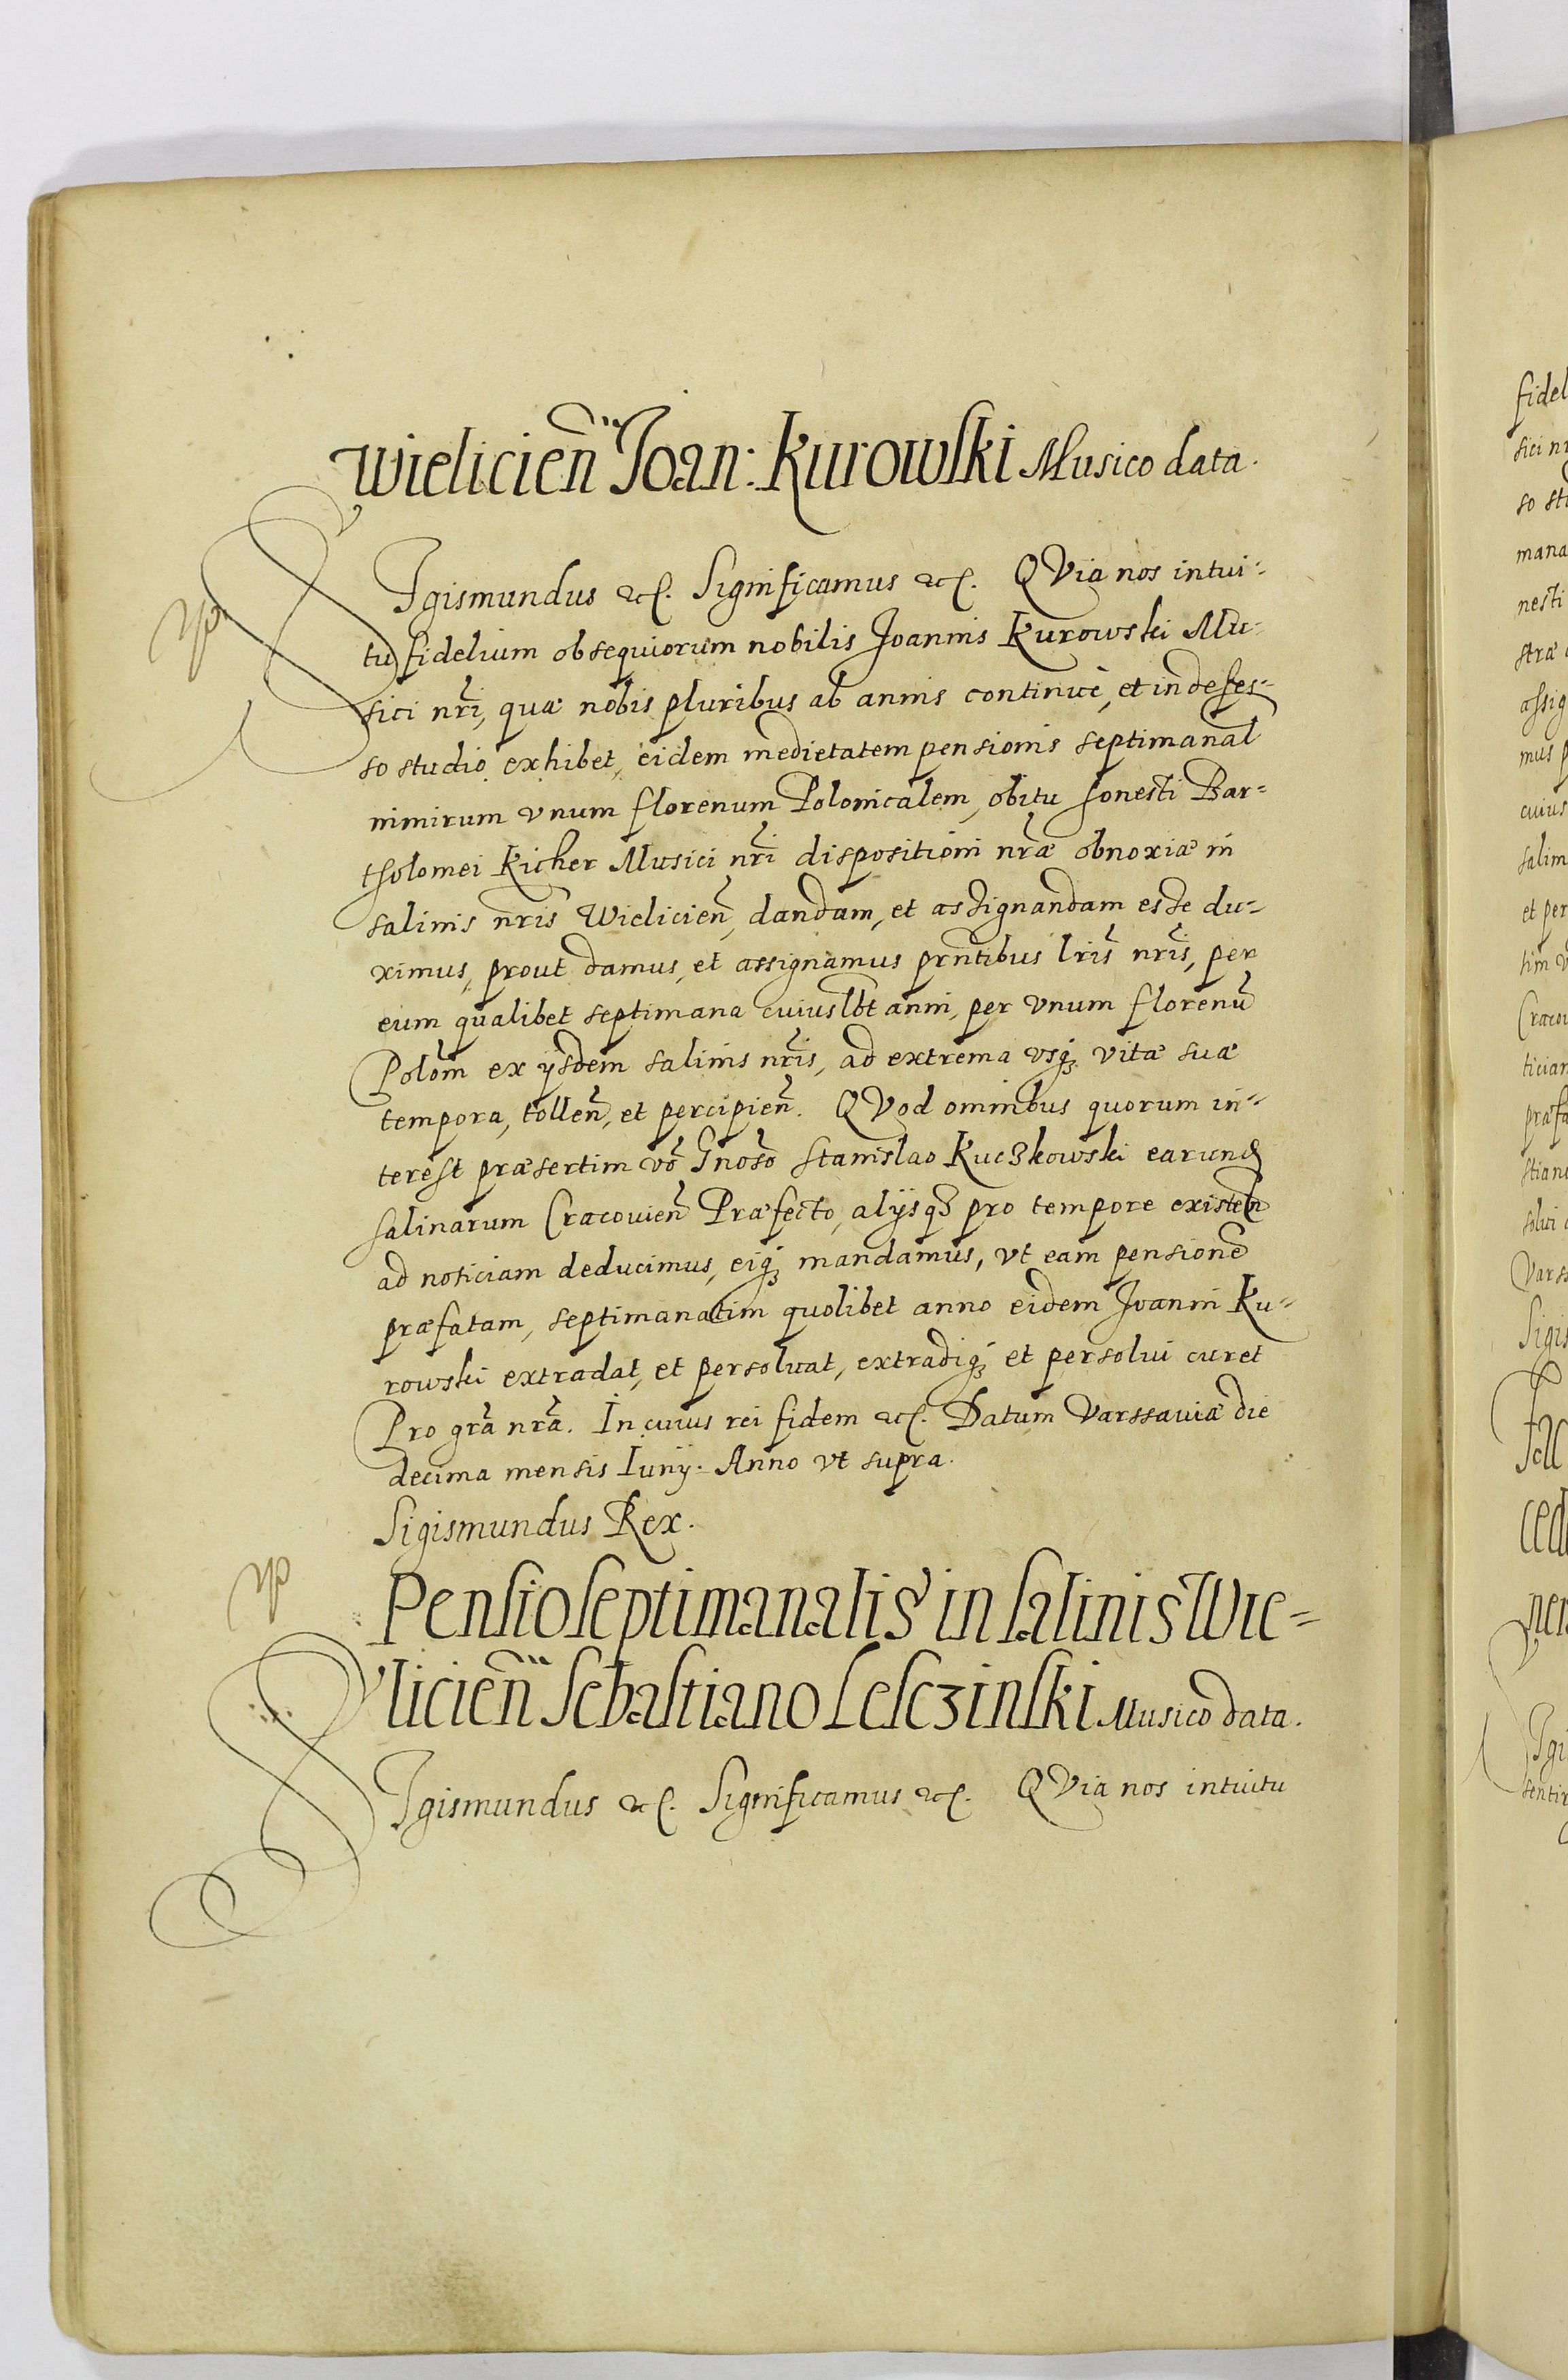 Wielicien̄ Joan: Kurowski Musico data.
SIgismundus etc. Significamus etc. QVia nos intui-
tu fidelium obsequiorum nobilis Joannis Kurowski Mu-
sici nr̄i, quæ nobis pluribus ab annis continuè, et indefes-
so studio exhibet, eidem medietatem pensionis septimanal
nimirum vnum florenum Polonicalem, obitu honesti Bar-
tholomei Kicher Musici nr̄i dispositioni nr̄æ obnoxiæ in
salinis nr̄is Wielicien̄, dandam, et assignandam esse du-
ximus, prout damus, et assignamus prn̄tibus lr̄is nr̄is, per
eum qualibet septimana cuiuslb̄t anni, per vnum florenū
Polōn ex ijsdem salinis nr̄is, ad extrema vsq; vitæ suæ
tempora, tollen̄, et percipien̄. QVod omnibus quorum in-
terest præsertim vō Gnōso Stanislao Kuczkowski earund
salinarum Cracouien̄ Præfecto, alijsq; pro tempore existen̄
ad noticiam deducimus, eiq; mandamus, vt eam pensionē
præfatam, septimanatim quolibet anno eidem Joanni Ku-
rowski extradat, et persoluat, extradiq; et persolui curet
Pro gr̄a nr̄a. In cuius rei fidem etc. Datum Varssauiæ die
decima mensis Iunij. Anno vt supra.
Sigismundus Rex.
Pensio septimanalis in salinis Wie-
licien̄ Sebastiano Lesczinski Musico data.
SIgismundus etc. Significamus etc. QVia nos intuitu